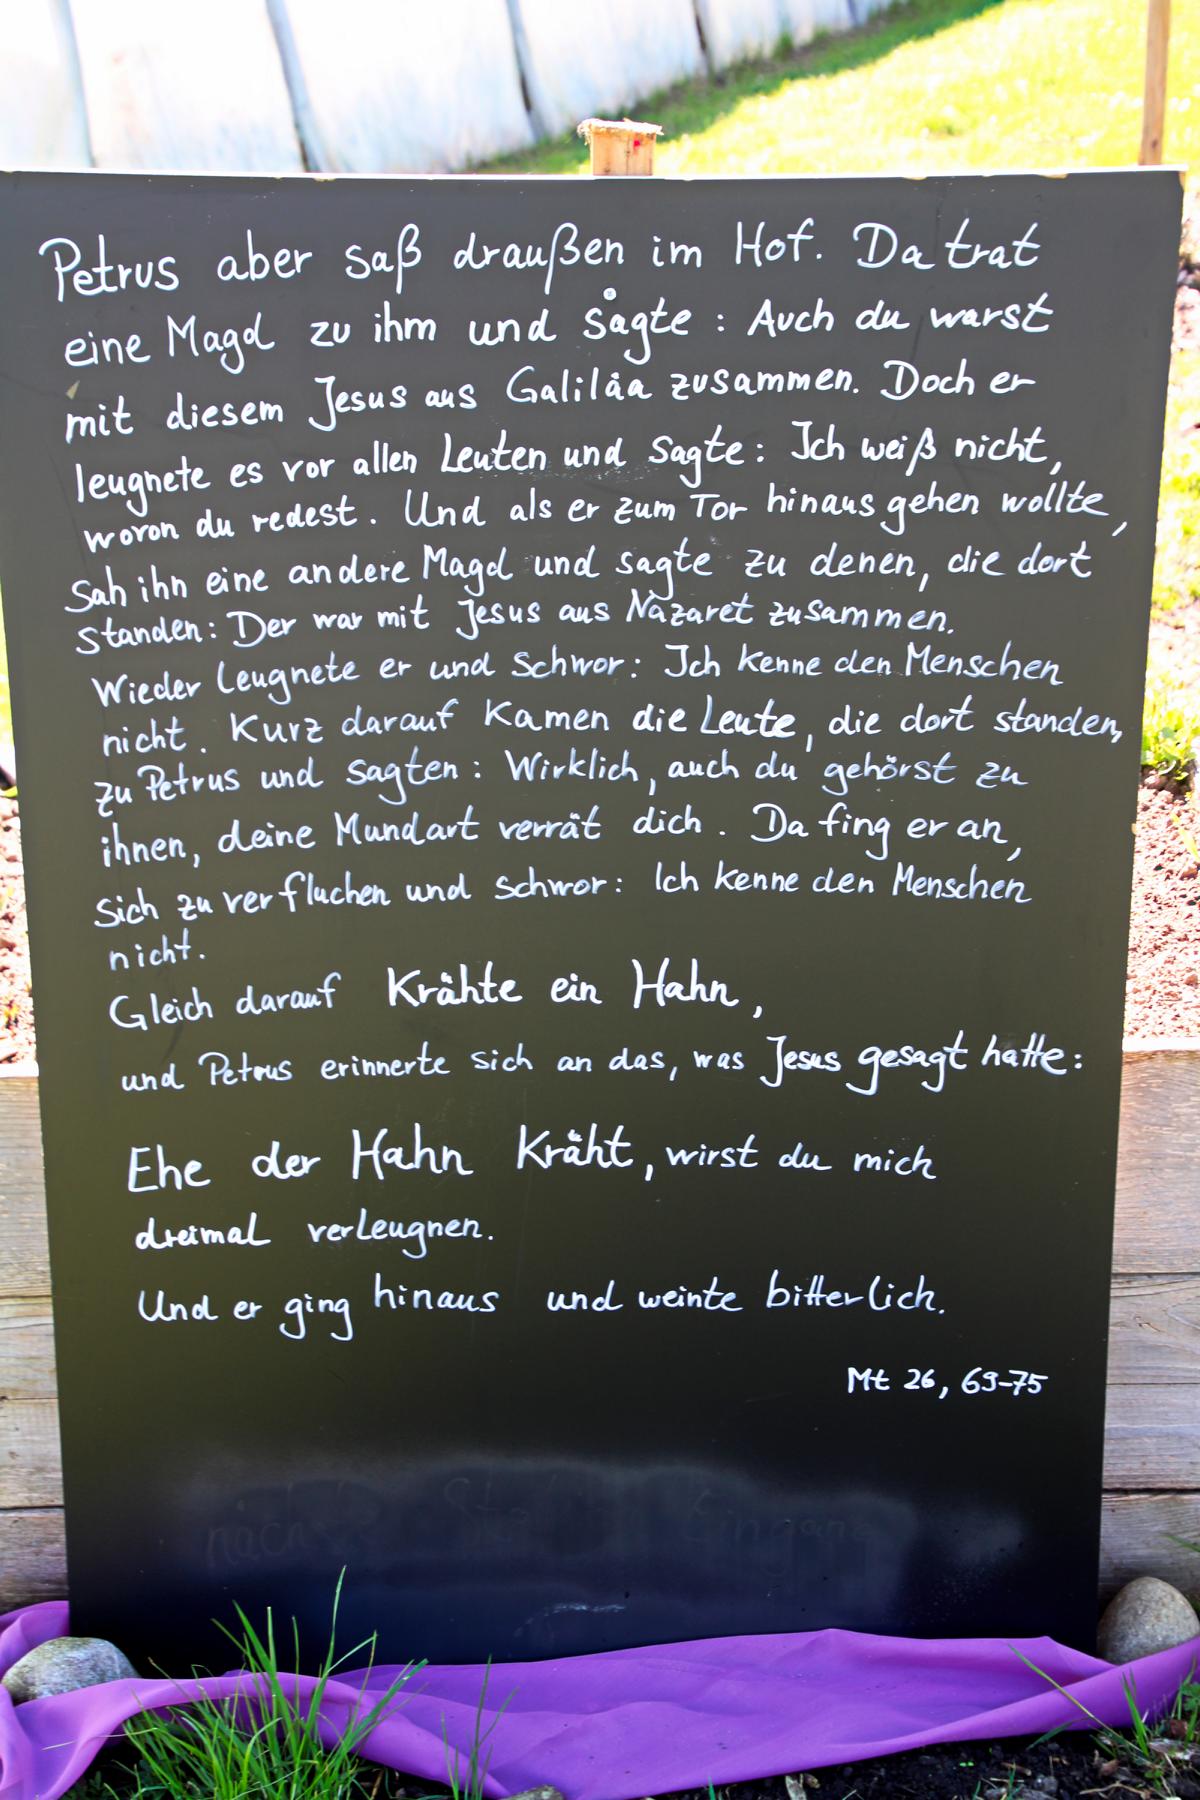 Petrus aber saß draußen im Hof. Da trat
eine Magd zu ihm und sagte: Auch du warst
mit diesem Jesus aus Galiläa zusammen. Doch er
leugnete es vor allen Leuten und sagte: Ich weiß nicht,
wovon du redest. Und als er zum Tor hinausgehen wollte,
sah ihn eine andere Magd und sagte zu denen, die dort
standen: Der war mit Jesus aus Nazaret zusammen.
Wieder leugnete er und schwor: Ich kenne den Menschen
nicht. Kurz darauf kamen die Leute, die dort standen,
zu Petrus und sagten: Wirklich, auch du gehörst zu
ihnen, deine Mundart verrät dich. Da fing er an,
sich zu verfluchen und schwor: Ich kenne den Menschen
nicht.
Gleich darauf krähte ein Hahn,
und Petrus erinnerte sich an das, was Jesus gesagt hatte:
Ehe der Hahn kräht, wirst du mich
dreimal verleugnen.
Und er ging hinaus und weinte bitterlich.
Mt 26, 69-75
Eingang